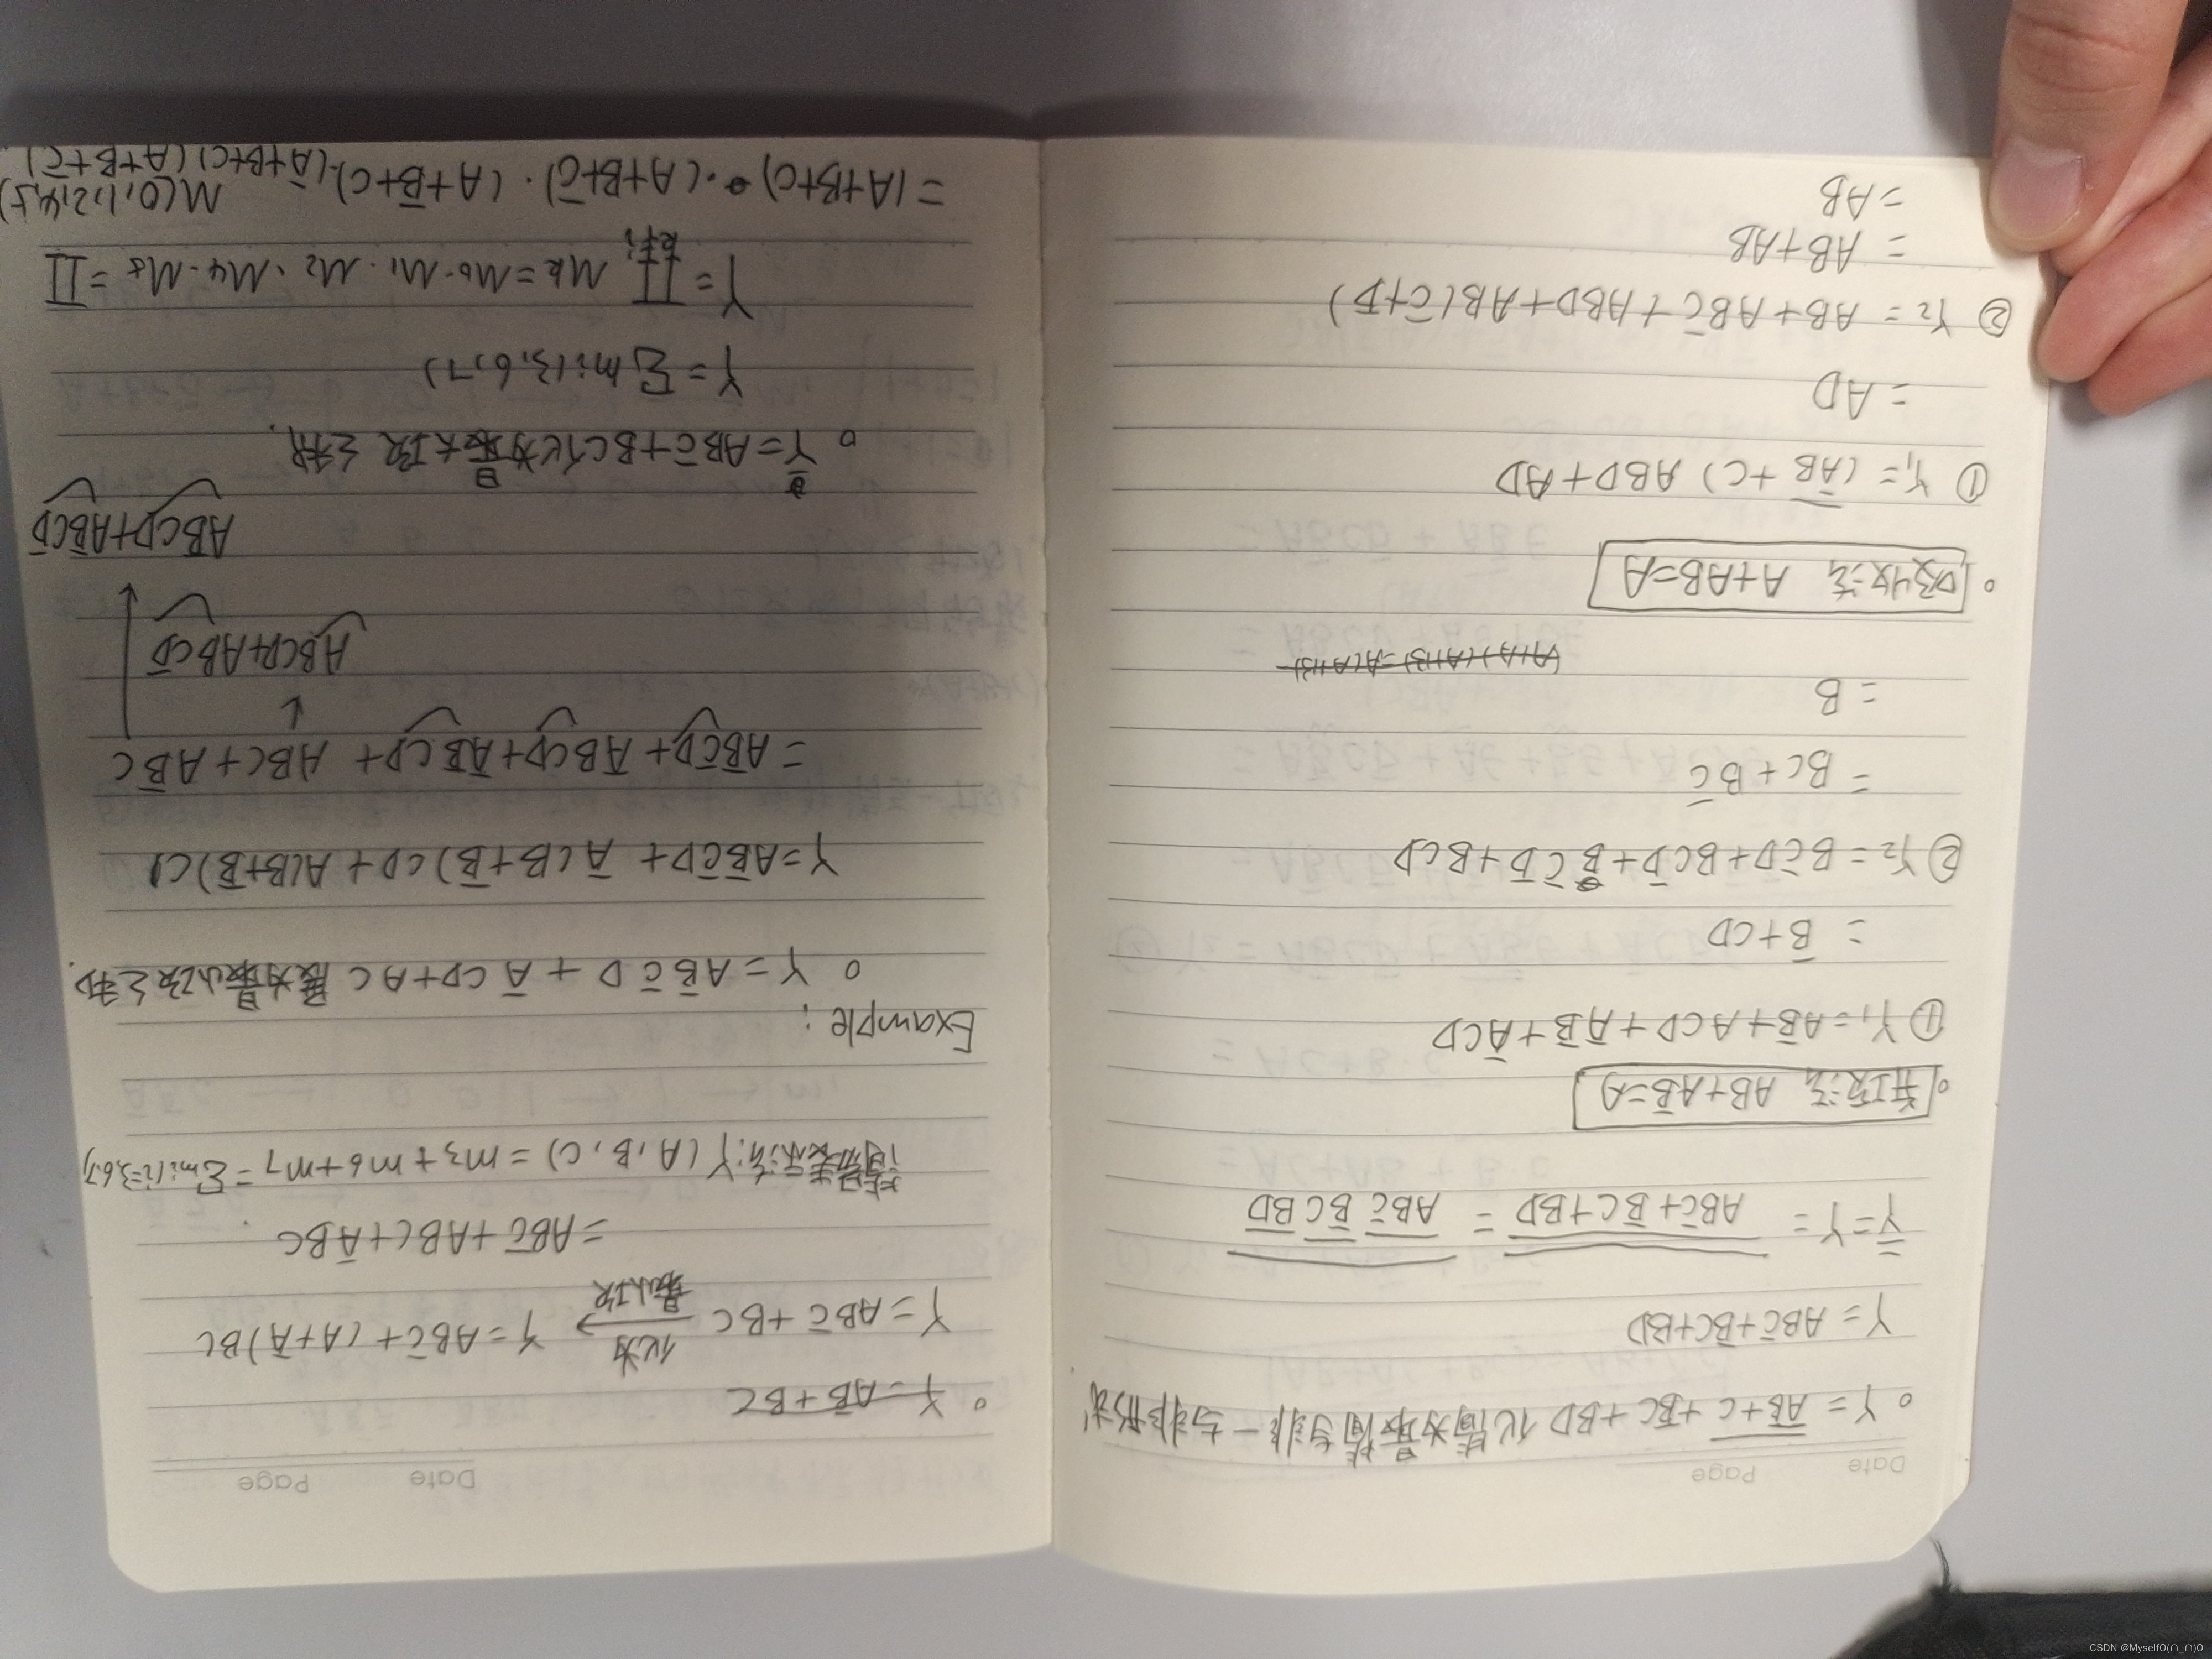 Date Page
○ Y = A̅B̅+C̅ + B̅C + BD 化简为最简与非-与非形式
Y = ABC̅ + B̅C + BD
Y̿ = Y = ABC̅ + B̅C + BD = ABC̅ B̅C BD
○ 并项法 AB + AB̅ = A
① Y₁ = AB̅ + ACD + A̅B̅ + A̅CD
= B̅ + CD
② Y₂ = BC̅D + BCD̅ + BC̅D̅ + BCD
= BC + BC̅
= B
○ 吸收法 A + AB = A
① Y₁ = (A̅B + C) ABD + AD
= AD
② Y₂ = AB + ABC̅ + ABD + AB(C̅ + D̅)
= AB + AB
= AB
Date Page
○ Y = AB̅ + BC
Y = ABC̅ + BC 化为 最小项 → Y = ABC̅ + (A + A̅)BC
= ABC̅ + ABC + A̅BC
简易表示法: Y(A,B,C) = m3 + m6 + m7 = Σmi (i=3,6,7)
Example:
○ Y = AB̅C̅D + A̅CD + AC 展为最小项之和.
Y = AB̅C̅D + A̅(B + B̅)CD + A(B + B̅)C
= AB̅C̅D + A̅BCD + A̅B̅CD + ABC + AB̅C
ABCD + ABCD̅
AB̅CD + AB̅CD̅
○ Y = ABC̅ + BC 化为最大项之积.
Y = Σ mi (3,6,7)
Y = ∏ k≠i Mk = M0 · M1 · M2 · M4 · M5 = ∏ M(0,1,2,4,5)
= (A+B+C) · (A+B+C̅) · (A+B̅+C) · (A̅+B+C) (A̅+B+C̅)
CSDN @Myself0(∩_∩)0